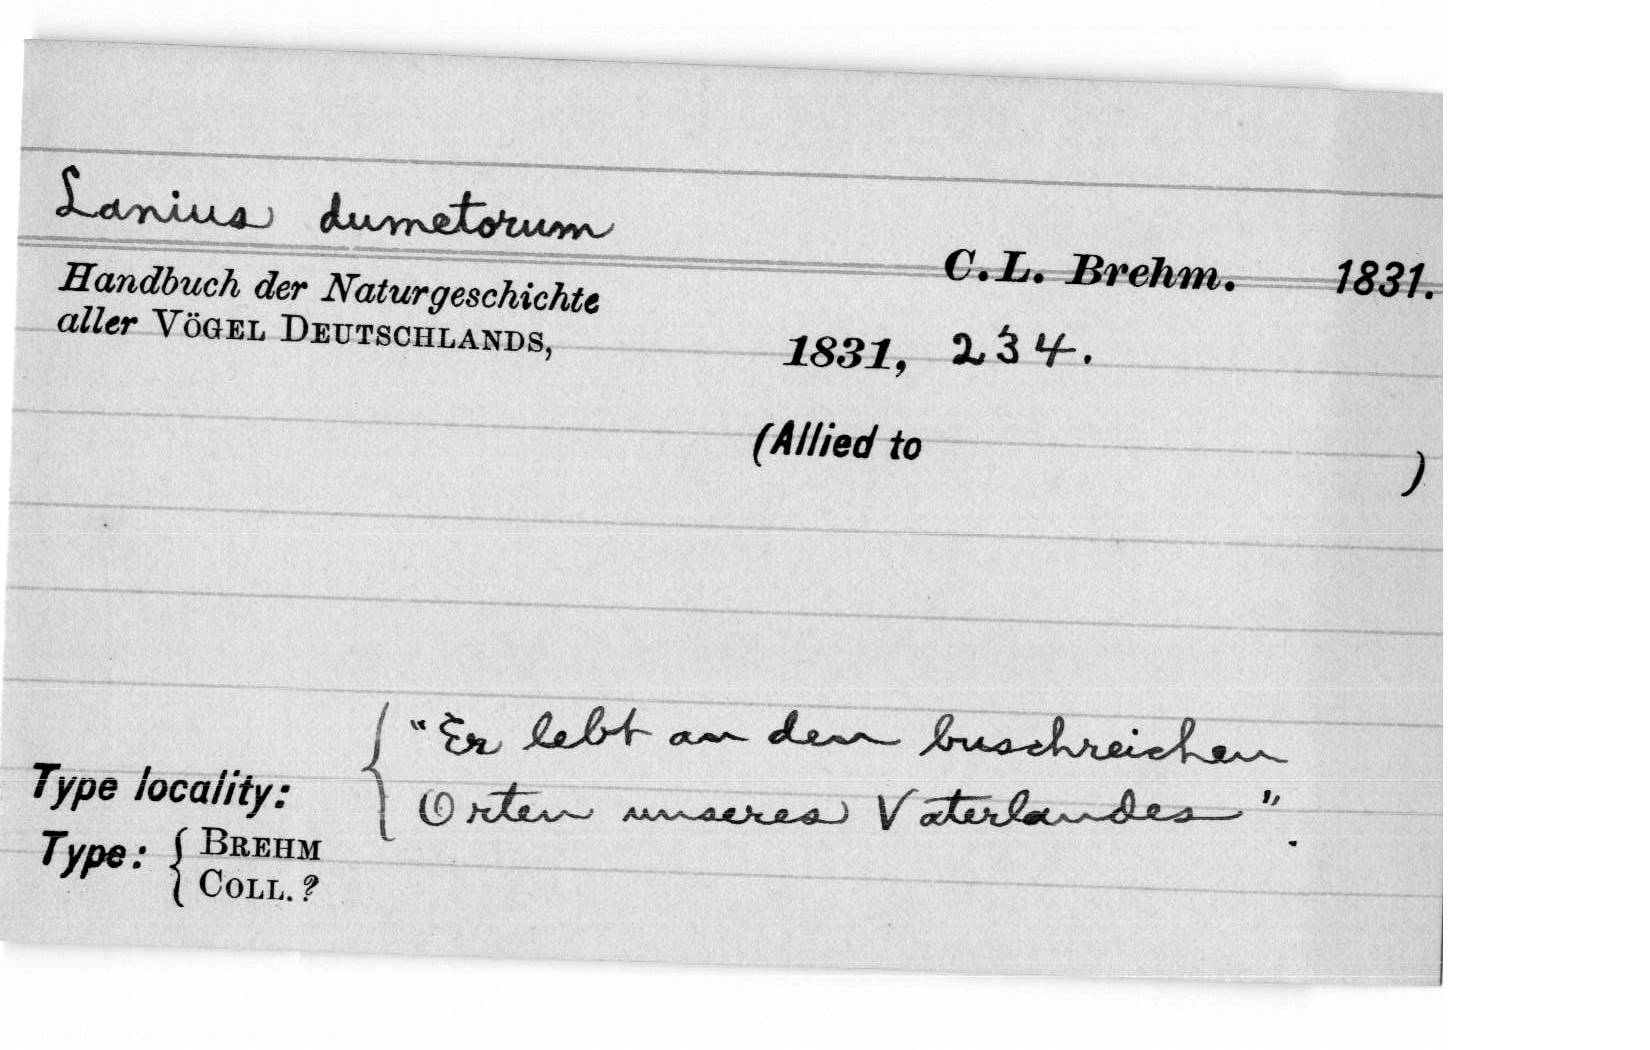 Lanius dumetorum
C. L. Brehm. 1831.
Handbuch der Naturgeschichte
aller VÖGEL DEUTSCHLANDS,
1831, 234.
(Allied to )
Type locality: { "Er lebt an den buschreichen
Orten unseres Vaterlandes".
Type: { BREHM
COLL. ?